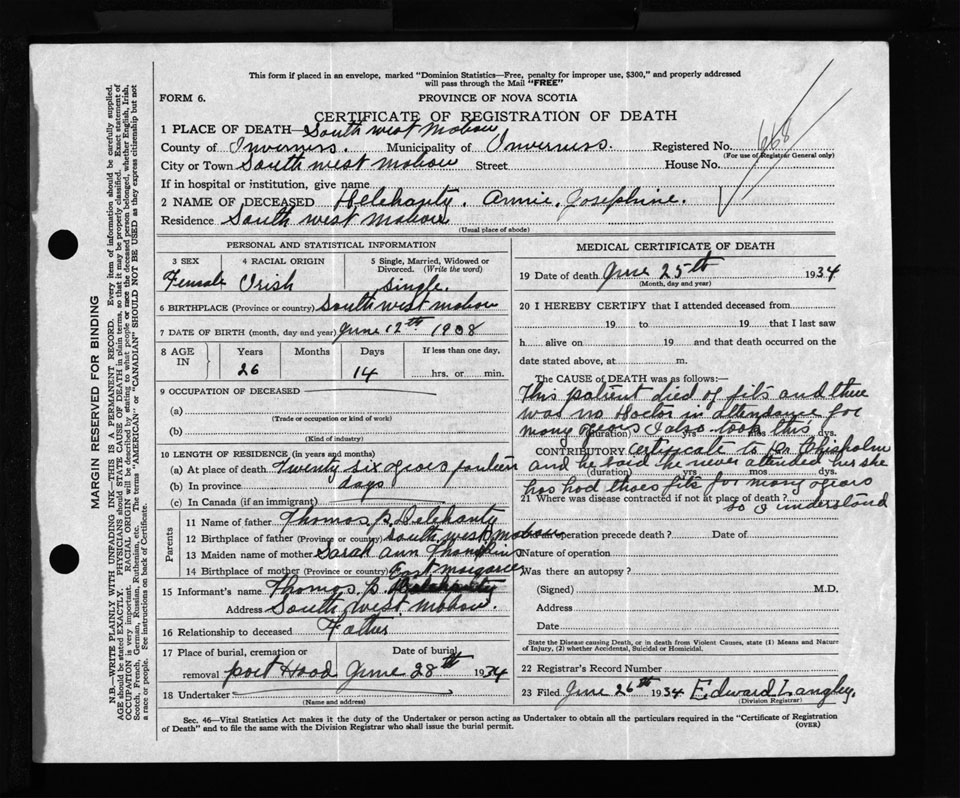 This form if placed in an envelope, marked "Dominion Statistics—Free, penalty for improper use, $300," and properly addressed
will pass through the Mail "FREE"
FORM 6.
PROVINCE OF NOVA SCOTIA
CERTIFICATE OF REGISTRATION OF DEATH
1 PLACE OF DEATH— South west Mabou
County of Inverness. Municipality of Inverness. Registered No. 668
(For use of Registrar General only)
City or Town South west Mabou Street House No.
If in hospital or institution, give name
2 NAME OF DECEASED Delehanty. Annie. Josephine.
Residence South west Mabou
(Usual place of abode)
PERSONAL AND STATISTICAL INFORMATION
3 SEX 4 RACIAL ORIGIN 5 Single, Married, Widowed or
Divorced. (Write the word)
Female Irish Single.
6 BIRTHPLACE (Province or country) South west Mabou
7 DATE OF BIRTH (month, day and year) June 12th 1908
8 AGE IN Years Months Days If less than one day,
26 14 hrs. or min.
9 OCCUPATION OF DECEASED
(a)
(Trade or occupation or kind of work)
(b)
(Kind of industry)
10 LENGTH OF RESIDENCE (in years and months)
(a) At place of death Twenty six years fourteen
(b) In province days
(c) In Canada (if an immigrant)
Parents
11 Name of father Thomas P. Delehanty
12 Birthplace of father (Province or country) South west Mabou
13 Maiden name of mother Sarah Ann
14 Birthplace of mother (Province or country)
15 Informant's name Thomas. P. Delehanty
Address South west Mabou.
16 Relationship to deceased Father
17 Place of burial, cremation or Date of burial,
removal port Hood June 28th 1934
18 Undertaker
(Name and address)
MEDICAL CERTIFICATE OF DEATH
19 Date of death June 25th 1934
(Month, day and year)
20 I HEREBY CERTIFY that I attended deceased from
19 to 19 that I last saw
h alive on 19 and that death occurred on the
date stated above, at m.
The CAUSE of DEATH was as follows:—
This patient died of fits and there
was no doctor in attendance for
many years I also took this
(duration) yrs mos dys.
CONTRIBUTORY certificate to Dr Chisholm
and he said he never attended her she
(duration) yrs. mos. dys.
has had thoes fits for many years
21 Where was disease contracted if not at place of death?
so I understand
Did an operation precede death? Date of
Nature of operation
Was there an autopsy?
(Signed) M.D.
Address
Date
State the Disease causing Death, or in death from Violent Causes, state (1) Means and Nature
of Injury, (2) whether Accidental, Suicidal or Homicidal.
22 Registrar's Record Number
23 Filed June 26th 1934 Edward Langley.
(Division Registrar)
Sec. 46—Vital Statistics Act makes it the duty of the Undertaker or person acting as Undertaker to obtain all the particulars required in the "Certificate of Registration
of Death" and to file the same with the Division Registrar who shall issue the burial permit.
(OVER)
MARGIN RESERVED FOR BINDING
N.B.—WRITE PLAINLY WITH UNFADING INK—THIS IS A PERMANENT RECORD. Every item of information should be carefully supplied.
AGE should be stated EXACTLY. PHYSICIANS should STATE CAUSE OF DEATH in plain terms, so that it may be properly classified. Exact statement of
OCCUPATION is very important. RACIAL ORIGIN will be described by stating to what people or race the deceased person belonged, whether English, Irish,
Scotch, French, German, Russian, Ruthenian, etc. The terms "AMERICAN" or "CANADIAN" SHOULD NOT BE USED as they express citizenship but not
a race or people. See instructions on back of Certificate.